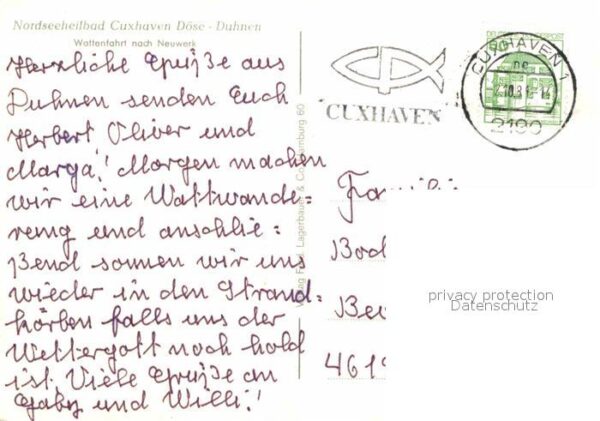 Nordseeheilbad Cuxhaven Döse - Duhnen
Wattenfahrt nach Neuwerk
Herzliche Grüße aus
Duhnen senden Euch
Herbert Oliver und
Marga! Morgen machen
wir eine Wattwande-
rung und anschlie=
ßend sonnen wir uns
wieder in den Strand=
körben falls uns der
Wettergott noch hold
ist. Viele Grüße an
Gaby und Willi!
Verlag Ferd. Lagerbauer & Co. Hamburg 60
CUXHAVEN
CUXHAVEN 1
2190
50
Bod
461
privacy protection
Datenschutz